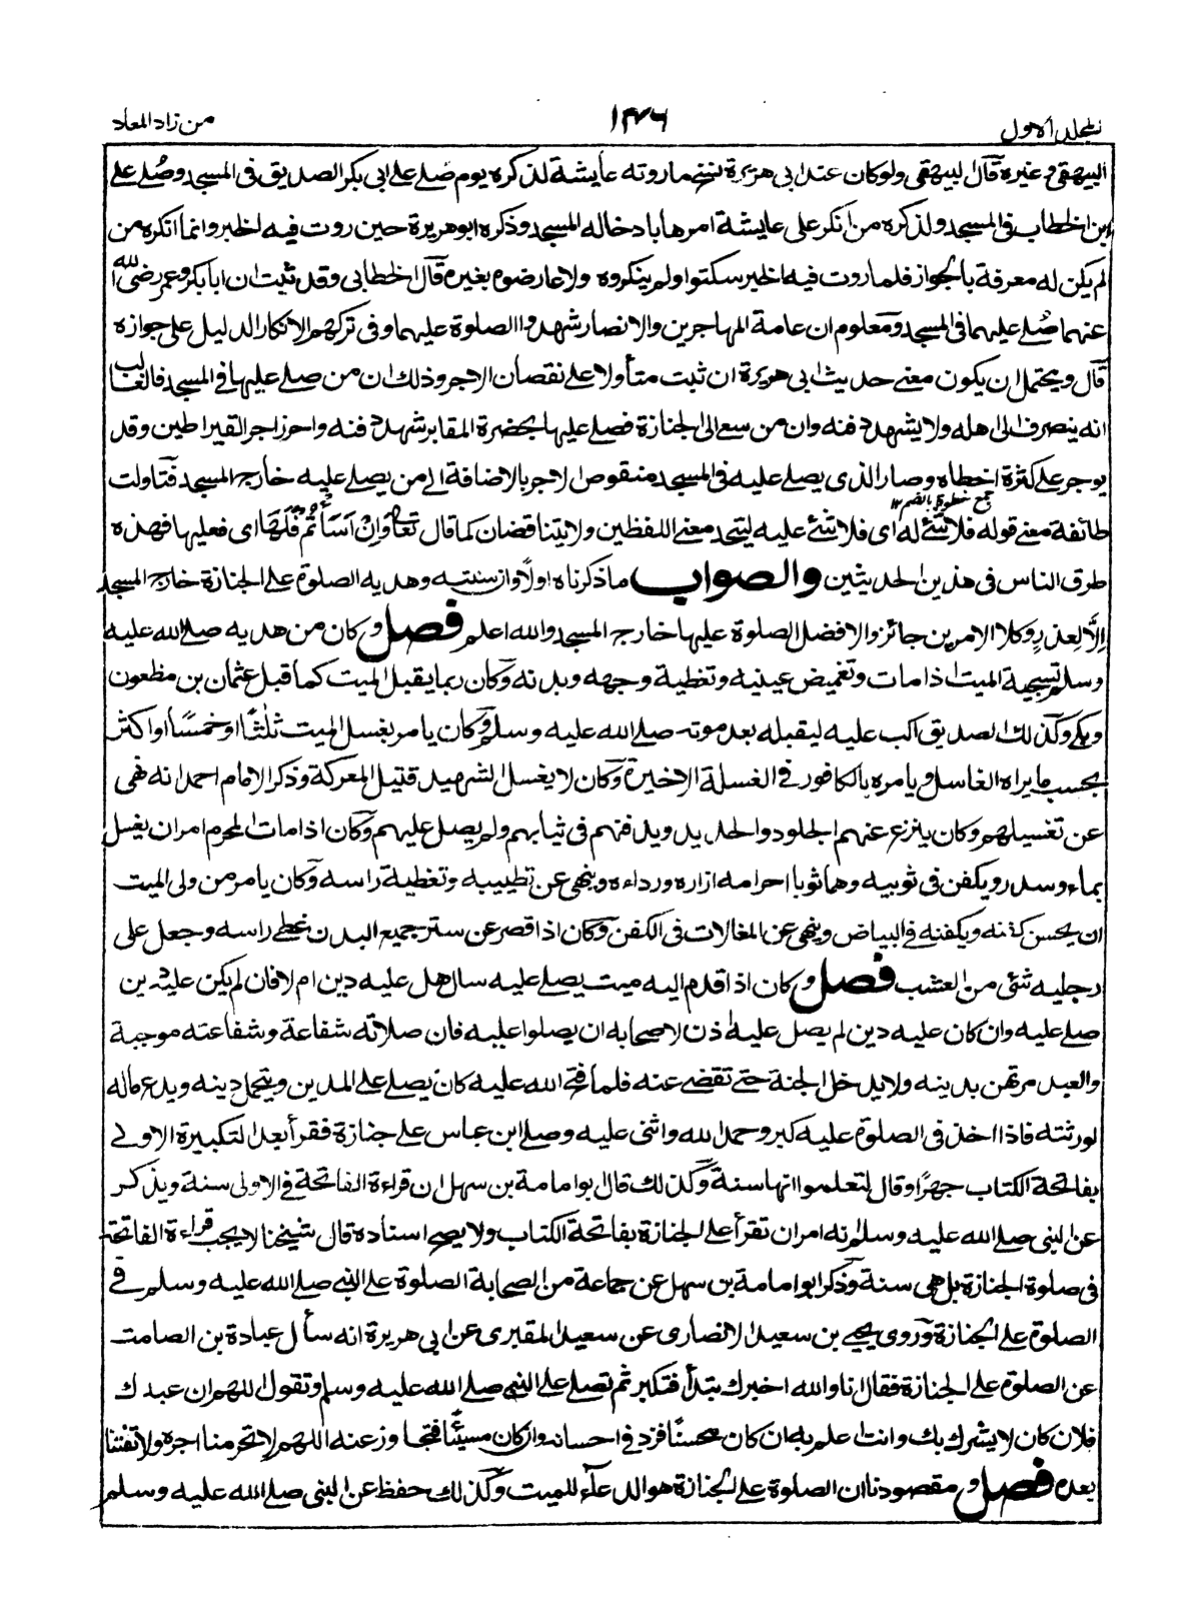 المجلد الاول
١٤٦
من زاد المعاد
البيهقى وغيره قال البيهقى ولو كان عند ابى هريرة نسخ ما روته عايشة لذكره يوم صُلے على ابى بكر الصديق فى المسجد وصُلے على
ابن الخطاب فى المسجد ولذكره من انكر على عايشة امرها بادخاله المسجد وذكره ابو هريرة حين روت فيه الخبر وانما انكره من
لم يكن له معرفة بالجواز فلما روت فيه الخبر سكتوا ولم ينكروه ولا عارضوه بغيره قال الخطابى وقد ثبت ان ابا بكر وعمر رضى الله
عنهما صُلے عليهما فى المسجد ومعلوم ان عامة المهاجرين والانصار شهدوا الصلوة عليهما وفى تركهم الانكار الدليل على جوازه
قال ويحتمل ان يكون معنے حديث ابى هريرة ان ثبت متأولا على نقصان الاجر وذلك ان من صلے عليها فى المسجد فالغالب
انه ينصرف الى اهله ولا يشهد دفنه وان من سعے الى الجنازة فصلے عليها بحضرة المقابر شهد دفنه واحرز اجر القيراطين وقد
يوجر على كثرة اخطاه وصار الذى يصلے عليه فى المسجد منقوص الاجر بالاضافة الے من يصلے عليه خارج المسجد فتأولت
جمع خطوة بالضم ١٢
طائفة معنے قوله فلا شئ له اى فلا شئ عليه ليتحد معنے اللفظين ولا يتناقضان كما قال تعالى وَاِنْ اَسَأْتُمْ فَلَهَا اى فعليها فهذه
طرق الناس فى هذين الحديثين والصواب ما ذكرناه اولاً وان سنته وهديه الصلوة على الجنازة خارج المسجد
اِلَّا لعذرٍ وكلا الامرين جائز والافضل الصلوة عليها خارج المسجد والله اعلم فصل وكان من هديه صلے الله عليه
وسلم تسجية الميت اذا مات وتغميض عينيه وتغطية وجهه وبدنه وكان ربما يقبل الميت كما قبل عثمان بن مظعون
وبكى وكذلك الصديق اكب عليه ليقبله بعد موته صلے الله عليه وسلم وكان يامر بغسل الميت ثلثًا او خمسًا او اكثر
بحسب ما يراه الغاسل ويامره بالكافور فى الغسلة الاخيرة وكان لا يغسل الشهيد قتيل المعركة وذكر الامام احمد انه نهى
عن تغسيلهم وكان ينزع عنهم الجلود والحديد ويدفنهم فى ثيابهم ولم يصل عليهم وكان اذا مات المحرم امر ان يغسل
بماء وسدر ويكفن فى ثوبيه وهما ثوبا احرامه ازاره ورداءه وينهى عن تطييبه وتغطية راسه وكان يامر من ولى الميت
ان يحسن كفنه ويكفنه فى البياض وينهى عن المغالات فى الكفن وكان اذا قصر عن ستر جميع البدن غطے راسه وجعل على
رجليه شئ من العشب فصل وكان اذا قدم اليه ميت يصلے عليه سال هل عليه دين ام لا فان لم يكن عليه دين
صلے عليه وان كان عليه دين لم يصل عليه واذن لاصحابه ان يصلوا عليه فان صلاته شفاعة وشفاعته موجبة
والعبد مرتهن بدينه ولا يدخل الجنة حتے تقضے عنه فلما فتح الله عليه كان يصلے على المدين ويتحمل دينه ويدع ماله
لورثته فاذا اخذ فى الصلوة عليه كبر وحمد الله واثنى عليه وصلے ابن عباس على جنازة فقرأ بعد التكبيرة الاولے
بفاتحة الكتاب جهرًا وقال لتعلموا انها سنة وكذلك قال ابو امامة بن سهل ان قراءة الفاتحة فى الاولى سنة ويذكر
عن النبى صلے الله عليه وسلم انه امر ان تقرأ على الجنازة بفاتحة الكتاب ولا يصح اسناده قال شيخنا لا يجب قراءة الفاتحة
فى صلوة الجنازة بل هى سنة وذكر ابو امامة بن سهل عن جماعة من الصحابة الصلوة على النبى صلے الله عليه وسلم فى
الصلوة على الجنازة وروى يحيے بن سعيد الانصارى عن سعيد المقبرى عن ابى هريرة انه سأل عبادة بن الصامت
عن الصلوة على الجنازة فقال انا والله اخبرك تبتدأ فتكبر ثم تصلے على النبى صلے الله عليه وسلم وتقول اللهم ان عبدك
فلان كان لا يشرك بك وانت اعلم به ان كان محسنًا فزد فى احسانه وان كان مسيئًا فتجاوز عنه اللهم لا تحرمنا اجره ولا تفتنا
بعده فصل ومقصودنا ان الصلوة على الجنازة هو الدعآء للميت وكذلك حفظ عن النبى صلے الله عليه وسلم